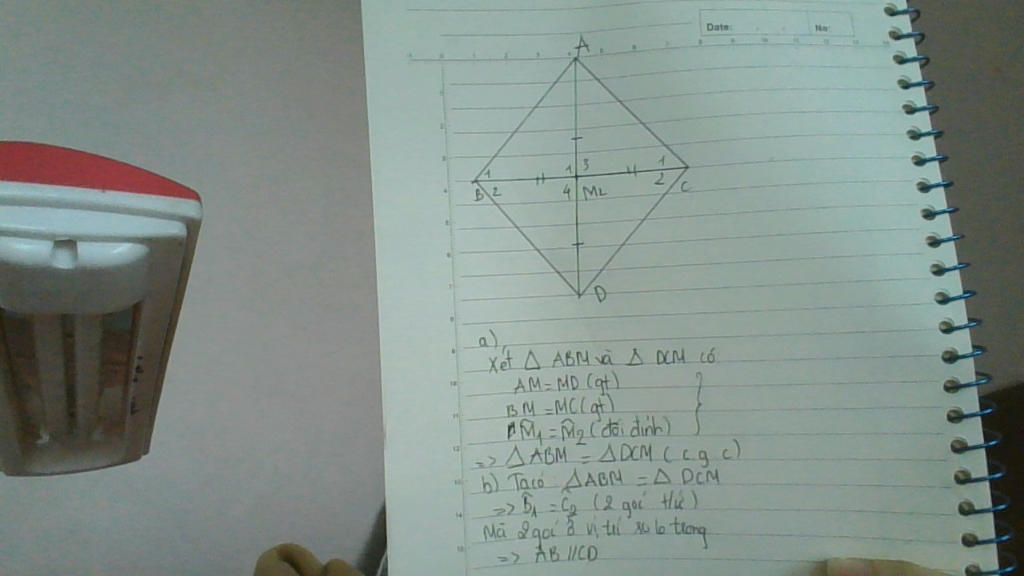 Date:
No:
A
1
3
1
B
2
4
M2
2
C
D
a)
Xét Δ ABM và Δ DCM có
AM = MD (gt)
BM = MC (gt)
M̂1 = M̂2 (đối đỉnh)
=> Δ ABM = Δ DCM ( c g c )
b) Ta có Δ ABM = Δ DCM
=> B̂1 = Ĉ2 (2 góc t/ứ)
Mà 2 góc ở vị trí so le trong
=> AB // CD